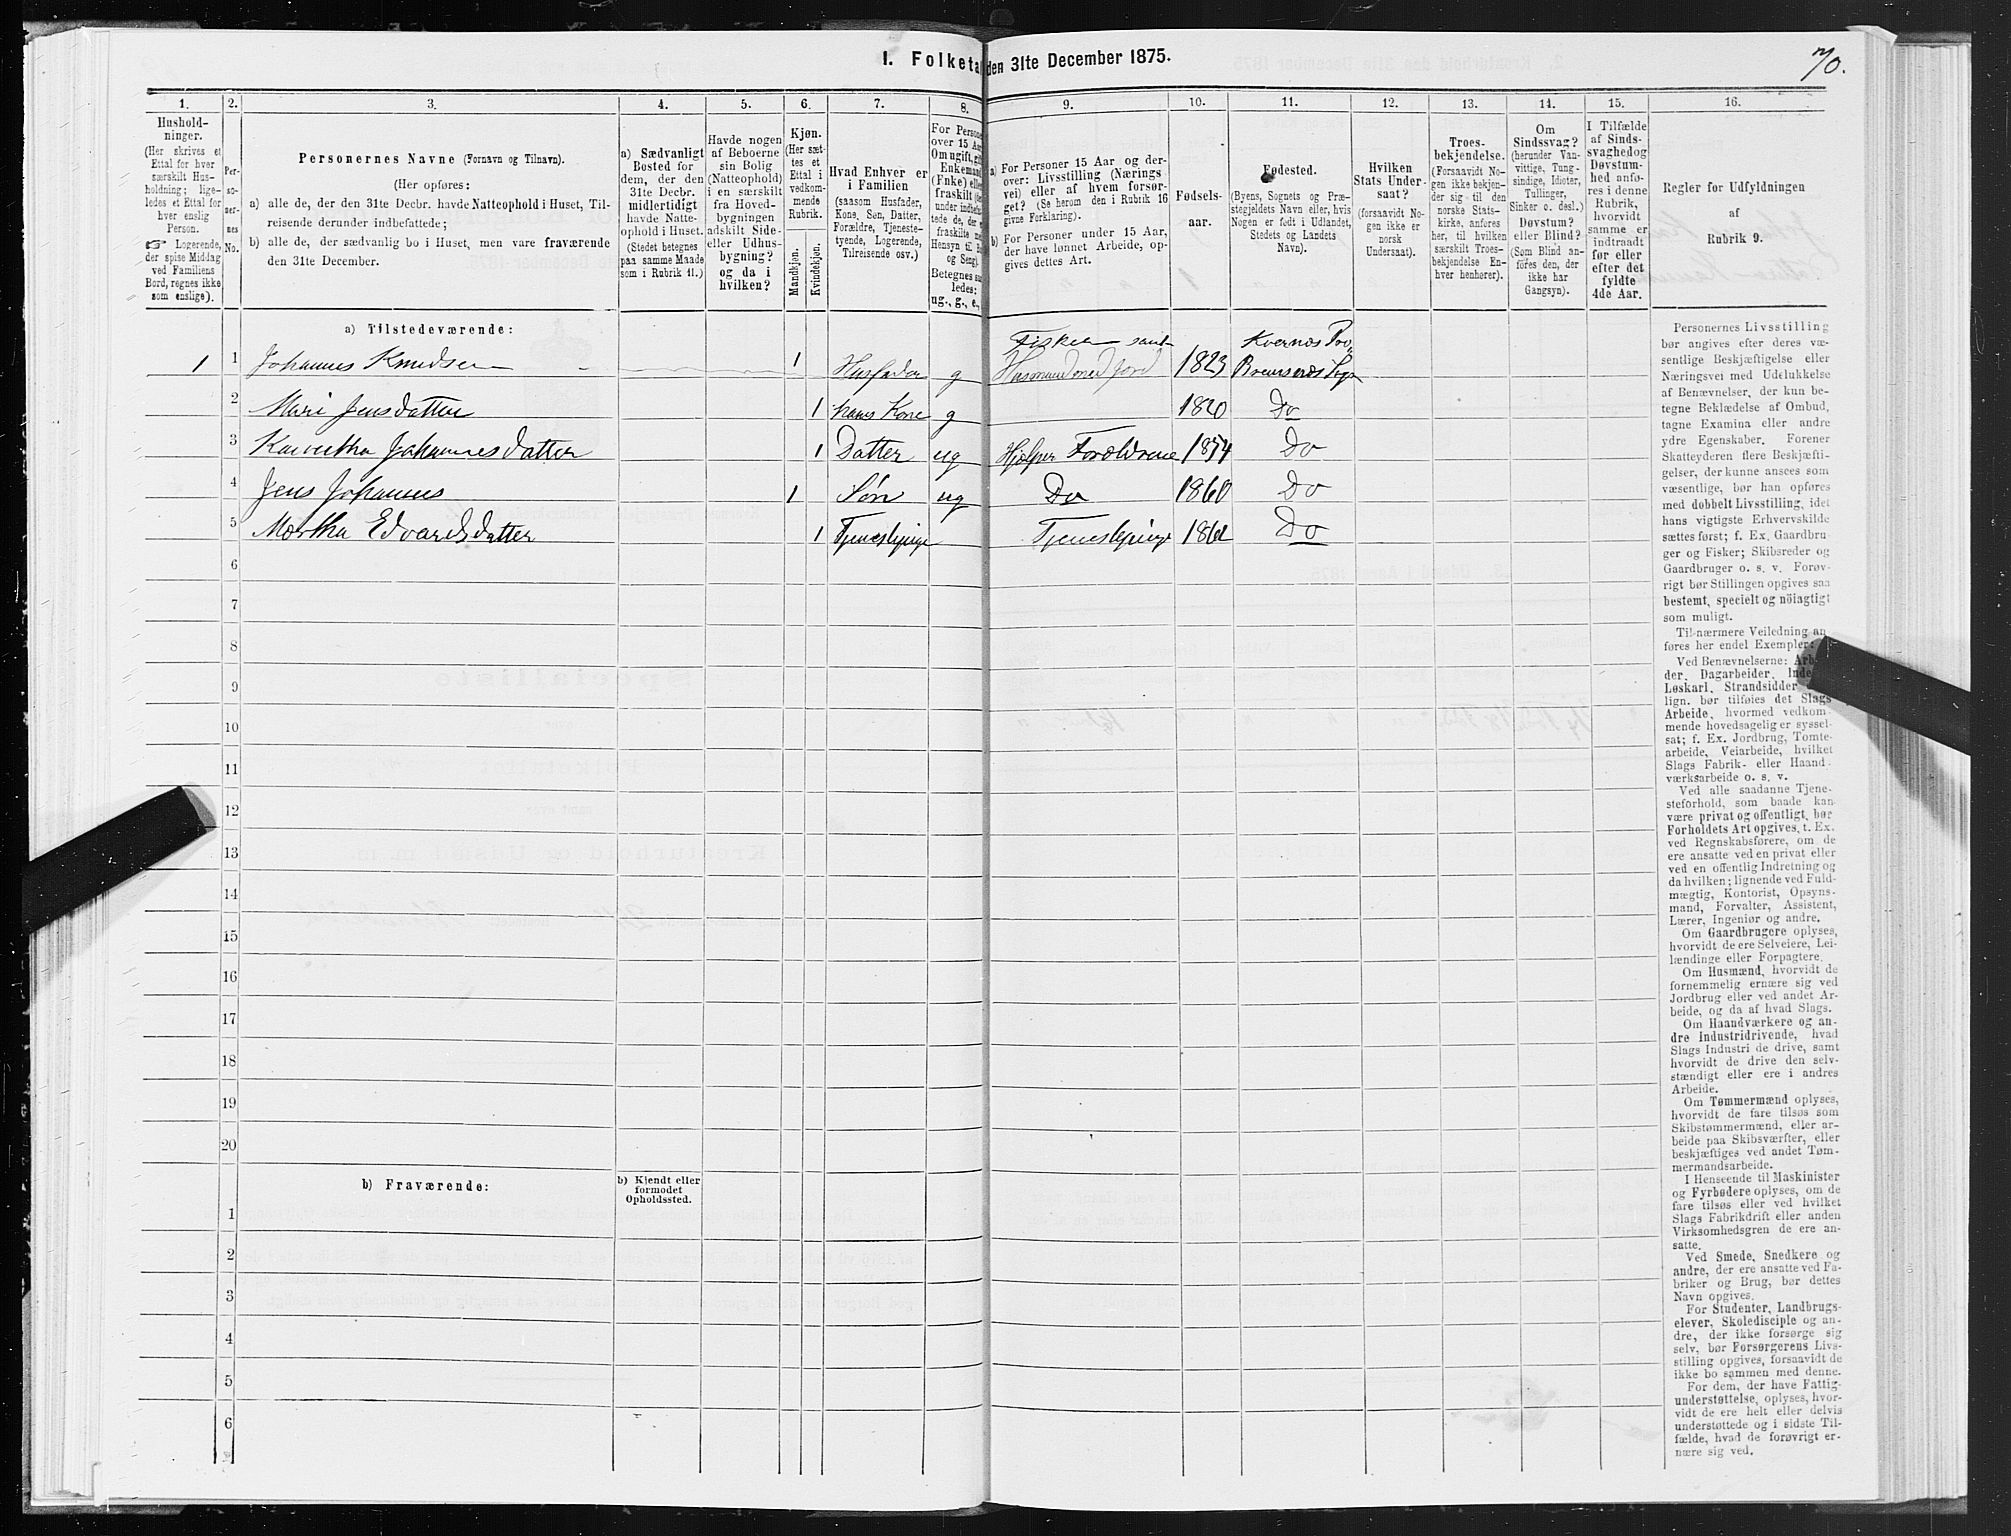 1. Folketal den 31te December 1875.
70.
1.
2.
3.
4.
5.
6.
7.
8.
9.
10.
11.
12.
13.
14.
15.
16.
Hushold-
ninger.
(Her skrives et
Ettal for hver
særskilt Hus-
holdning; lige-
ledes et Ettal for
hver enslig
Person.
☞ Logerende,
der spise Middag
ved Familiens
Bord, regnes ikke
som enslige).
Per-
so-
ner-
nes
No.
Personernes Navne (Fornavn og Tilnavn).
(Her opføres:
a) alle de, der den 31te Decbr. havde Natteophold i Huset, Til-
reisende derunder indbefattede;
b) alle de, der sædvanlig bo i Huset, men vare fraværende
den 31te December.
a) Sædvanligt
Bosted for
dem, der den
31te Decbr.
midlertidigt
havde Natte-
ophold i Huset.
(Stedet betegnes
paa samme Maade
som i Rubrik 11.)
Havde nogen
af Beboerne
sin Bolig
(Natteophold)
i en særskilt
fra Hoved-
bygningen
adskilt Side-
eller Udhus-
bygning?
og da i
hvilken?
Kjøn.
(Her sæt-
tes et
Ettal i
vedkom-
mende
Rubrik.
Mandkjøn.
Kvindekjøn.
Hvad Enhver er
i Familien
(saasom Husfader,
Kone, Søn, Datter,
Forældre, Tjeneste-
tyende, Logerende,
Tilreisende osv.)
For Person
over 15 Aar
Om ugift, gift
Enkemand
(Enke) eller
fraskilt
under indbefat-
tede de, der
fraskilte
Hensyn til Bo
og Seng).
Betegnes saa-
ledes:
ug., g., e.,
a) For Personer 15 Aar og der-
over: Livsstilling (Nærings
vei) eller af hvem forsør-
get? (Se herom den i Rubrik 16
givne Forklaring).
b) For Personer under 15 Aar,
der have lønnet Arbeide, op-
gives dettes Art.
Fødsels-
aar.
Fødested.
(Byens, Sognets og Præ-
stegjeldets Navn eller, hvis
Nogen er født i Udlandet,
Stedets og Landets
Navn).
Hvilken
Stats Under-
saat?
(forsaavidt No-
gen ikke er
norsk
Undersaat).
Troes-
bekjendelse.
(Forsaavidt No-
gen ikke bekjen-
der sig til den
norske Stats-
kirke, anføres
her, til hvilken
særskilt Troes-
bekjendelse En-
hver henhører).
Om
Sindssvag?
(herunder Van-
vittige, Tung-
sindige, Idioter,
Tullinger,
Sinker o. desl.)
Døvstum?
eller Blind?
(Som Blind an-
føres den, der
ikke har
Gangsyn).
I Tilfælde
af Sinds-
svaghed og
Døvstum-
hed anfø-
res i denne
Rubrik,
hvorvidt
samme er
indtraadt
før eller
efter det
fyldte
4de Aar.
Regler for Udfyldningen
af
Rubrik 9.
a) Tilstedeværende:
1 1 Johannes Knudsen 1 Husfader g Fisker samt Husmand med Jord 1823 Kvernes Præ. Bremsnæs Sogn
2 Mari Jensdatter 1 hans Kone g 1820 Do
3 Johannesdatter 1 Datter ug Hjelper Forældrene 1854 Do
4 Jens Johannes 1 Søn ug Do 1860 Do
5 Martha Edvardsdatter 1 Tjenestepige Tjenestepige 1861 Do
6
7
8
9
10
11
12
13
14
15
16
17
18
19
20
b) Fraværende:
b) Kjendt eller
formodet
Opholdssted.
1
2
3
4
5
6
Personernes Livsstilling
bør angives efter deres væ-
sentlige Beskjæftigelse eller
Næringsvei med Udelukkelse
af Benævnelser, der kun be-
tegne Beklædelse af Ombud,
tagne Examina eller andre
ydre Egenskaber. Forener
Skatteyderen flere Beskjæfti-
gelser, der kunne ansees som
væsentlige, bør han opføres
med dobbelt Livsstilling, idet
hans vigtigste Erhvervskilde
sættes først; f. Ex. Gaardbru-
ger og Fisker; Skibsreder og
Gaardbruger o. s. v. Forøv-
rigt bør Stillingen opgives saa
bestemt, specielt og nöiagtigt
som muligt.
Til nærmere Veiledning an-
føres her endel Exempler:
Ved Benævnelserne: Arbei-
der, Dagarbeider,
Løskarl, Strandsidder
lign. bør tilføies det Slags
Arbeide, hvormed vedkom-
mende hovedsagelig er syssel-
sat; f. Ex. Jordbrug, Tomte-
arbeide, Veiarbeide, hvilket
Slags Fabrik- eller Haand-
værksarbeide o. s. v.
Ved alle saadanne Tjene-
steforhold, som baade kan
være privat og offentligt, bør
Forholdets Art opgives, t. Ex.
ved Regnskabsførere, om de
ere ansatte ved en privat eller
ved en offentlig Indretning og
da hvilken; lignende ved Fuld-
mægtig, Kontorist, Opsyns-
mand, Forvalter, Assistent,
Lærer, Ingeniør og andre.
Om Gaardbrugere oplyses,
hvorvidt de ere Selveiere, Lei-
lændinge eller Forpagtere.
Om Husmænd, hvorvidt de
fornemmelig ernære sig ved
Jordbrug eller ved andet Ar-
beide, og da af hvad Slags.
Om Haandværkere og an-
dre Industridrivende, hvad
Slags Industri de drive, samt
hvorvidt de drive den selv-
stændigt eller ere i andres
Arbeide.
Om Tømmermænd oplyses,
hvorvidt de fare tilsøs som
Skibstømmermænd, eller ar-
beide paa Skibsværfter, eller
beskjæftiges ved andet Tøm-
mermandsarbeide.
I Henseende til Maskinister
og Fyrbødere oplyses, om de
fare tilsøs eller ved hvilket
Slags Fabrikdrift eller anden
Virksomhedsgren de ere an-
satte.
Ved Smede, Snedkere og
andre, der ere ansatte ved Fa-
briker og Brug, bør dettes
Navn opgives.
For Studenter, Landbrugs-
elever, Skoledisciple og an-
dre, der ikke forsørge sig
selv, bør Forsørgerens Livs-
stilling opgives, forsaavidt de
ikke bo sammen med denne.
For dem, der have Fattig-
understøttelse, oplyses, hvor-
vidt de ere helt eller delvis
understøttede og i sidste Til-
fælde, hvad de forøvrigt er-
nære sig ved.